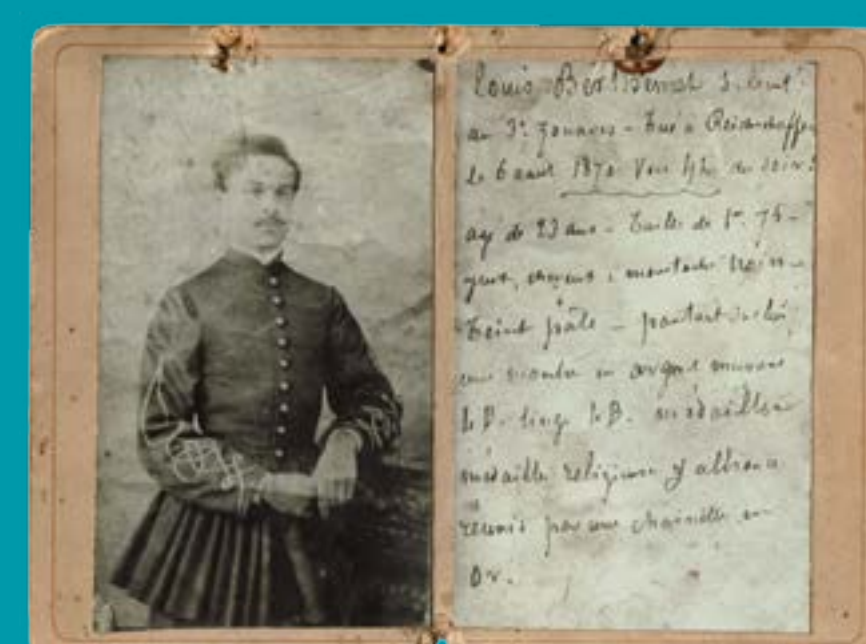 Louis s. Lieut^t
au 3^e Zouaves - Tué à Reichshoffen
le 6 août 1870 Vers 4h du soir.
agé de 23 ans - Taille de 1^m 75 -
yeux, cheveux, moustache noirs -
Teint pâle - portant sur lui,
une montre en argent
L.B. linge L.B. médaillon
médaille religieuse & alliance
réunis par une chainette en
or.